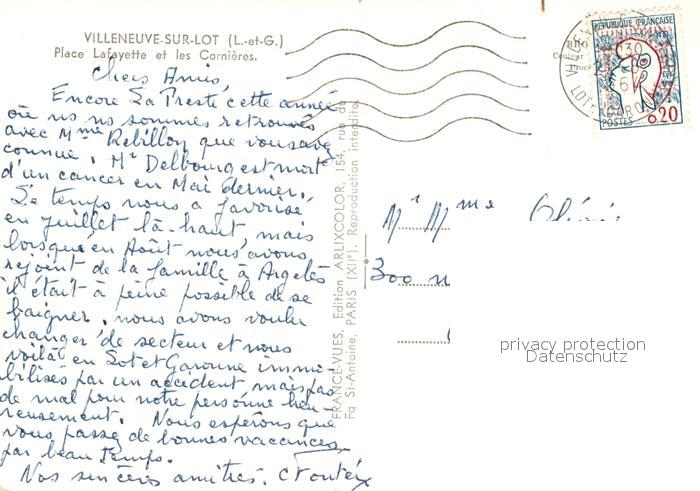 VILLENEUVE-SUR-LOT (L.-et-G.)
Place Lafayette et les Cornières.
Chers Amis,
Encore La Preste cette année
où ns ns sommes retrouvés
avec Mme Rebillon que vous avez
connue. Mr Delbourg est mort
d'un cancer en Mai dernier.
Le temps nous a favorisé
en juillet là-haut, mais
lorsqu'en Août nous avons
rejoint de la famille à Argelès
il était à peine possible de se
baigner. nous avons voulu
changer de secteur et nous
voilà en Lot et Garonne immo-
bilisés par un accident mais pas
de mal pour notre personne heu-
reusement. Nous espérons que
vous passez de bonnes vacances
par beau temps.
Nos sincères amitiés.
FRANCE-VUES, Edition ARLIXCOLOR, 154, rue du
Fg St-Antoine, PARIS (XIIe). Reproduction interdite.
REPUBLIQUE FRANÇAISE
POSTES
0,20
Mr Mme
300
privacy protection
Datenschutz